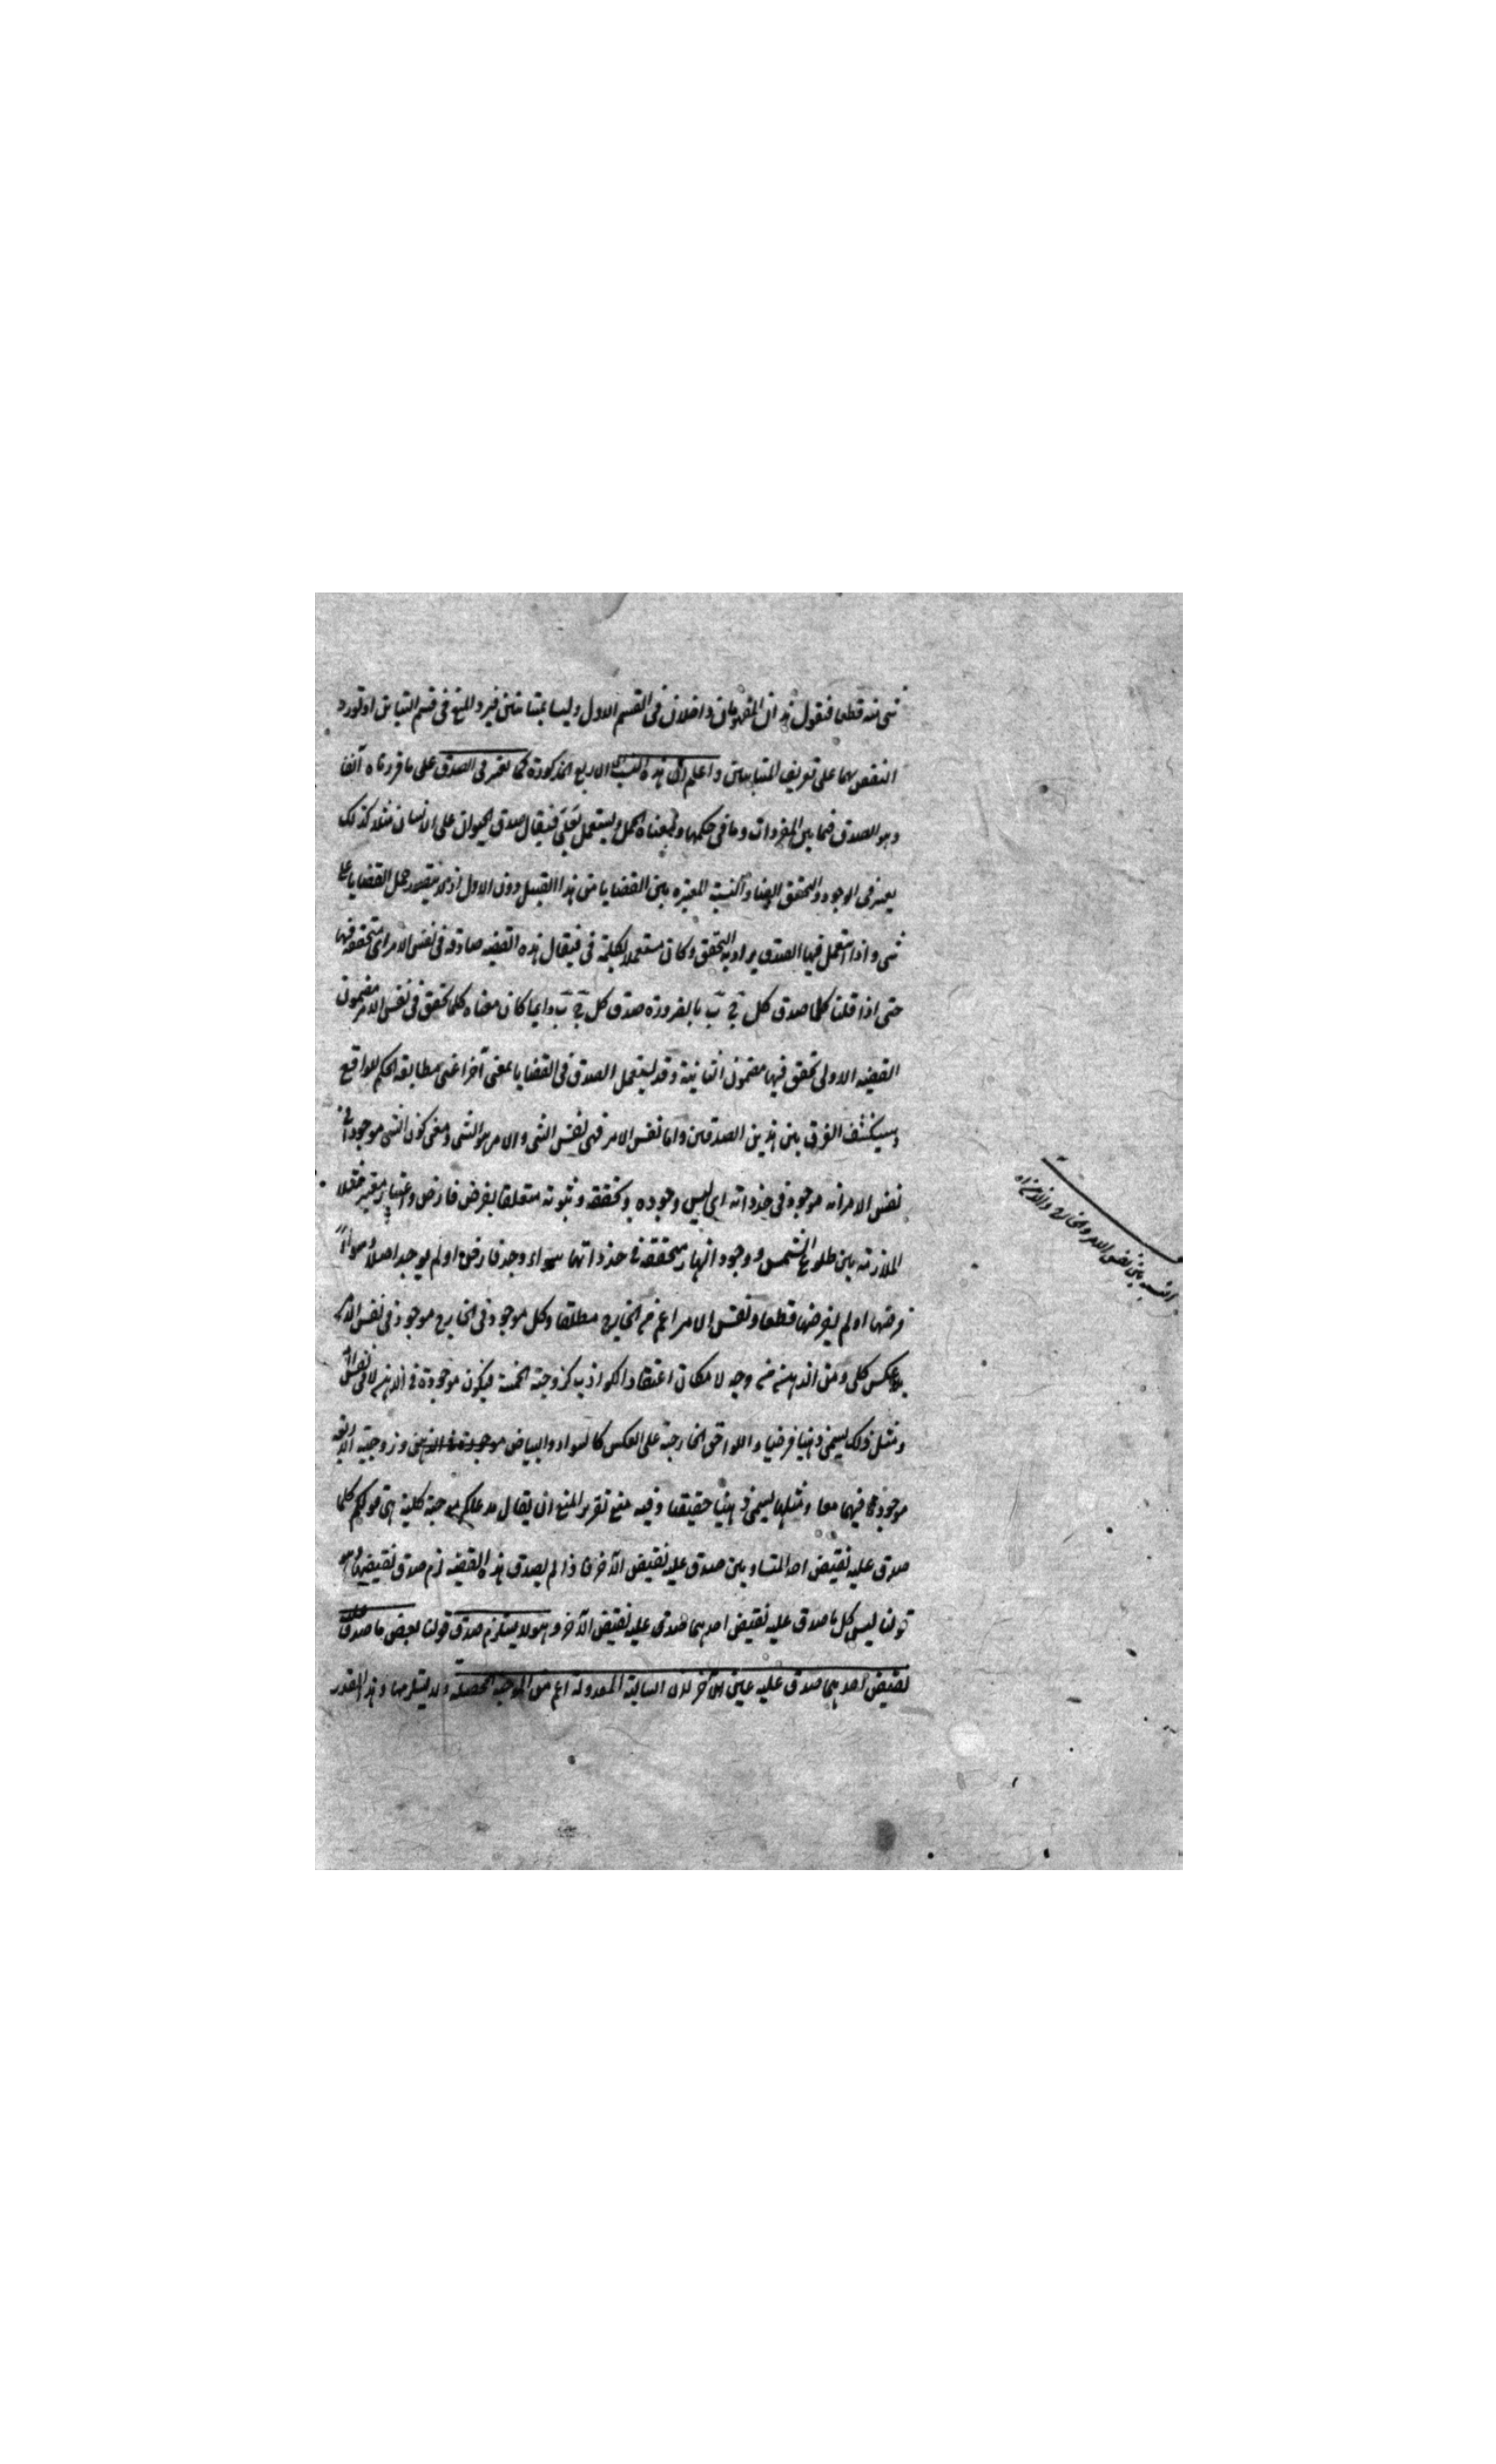 شئ منه قطعا فنقول هذان المفهومان داخلان في القسم الاول وليسا بمتباينين فيرد المنع في قسم التباين او تورد
النقض بهما على تعريف المتباينين واعلم ان هذه النسب الاربع المذكورة كما تعتبر في الصدق على ما قررناه آنفا
وهو الصدق فيما بين المفردات وما في حكمها ومعناه الحمل ويستعمل بعلى فيقال صدق الحيوان على الانسان مثلا كذلك
يعتبر في الوجود والتحقق ايضا والنسبة المعتبره بين القضايا من هذا القبيل دون الاول اذ لا يتصور حمل القضايا على
شئ واذا استعمل فيها الصدق يراد به التحقق وكان مستعملا بكلمة في فيقال هذه القضيه صادقة في نفس الامر اى متحققة فيها
حتى اذا قلنا كلما صدق كل ج ب بالضرورة صدق كل ج ب دايما كان معناه كلما تحقق في نفس الامر مضمون
القضيه الاولى تحقق فيها مضمون الثانية وقد يستعمل الصدق في القضايا بمعنى آخر اعنى مطابقة الحكم للواقع
وسيكشف الفرق بين هذين الصدقين واما نفس الامر فهى نفس الشئ والامر هو الشئ ومعنى كون الشئ موجودا في
نفس الامر انه موجود في حد ذاته اى ليس وجوده وتحققه وثبوته متعلقا بفرض فارض واعتبار معتبر مثلا
الملازمة بين طلوع الشمس ووجود النهار متحققة في حد ذاتها سواء وجد فارض او لم يوجد اصلا وسواء
فرضها او لم يفرضها قطعا ونفس الامر اعم من الخارج مطلقا وكل موجود في الخارج موجود في نفس الامر
بلا عكس كلى ومن الذهن من وجه لامكان اعتقاد الكواذب كزوجية الخمسة فيكون موجودة في الذهن لا في نفس الامر
ومثل ذلك يسمى ذهنيا فرضيا واللواحق الخارجية على العكس كالسواد والبياض موجودة في الذهن وزوجية الاربعة
موجودة فيهما معا ومثلها يسمى ذهنيا حقيقيا وفيه منع تقرير المنع ان يقال مدعاكم موجبة كلية هي قولكم كلما
صدق عليه نقيض احد المتساويين صدق عليه نقيض الآخر فاذا لم يصدق هذه القضيه لزم صدق نقيضها وهو
قولنا ليس كل ما صدق عليه نقيض احدهما صدق عليه نقيض الآخر وهو لا يستلزم صدق قولنا بعض ما صدق عليه
نقيض احدهما صدق عليه عين الآخر لان السالبة المعدولة اعم من الموجبة المحصلة ولا يستلزمها وهذا القدر
بين نفس الامر والخارج